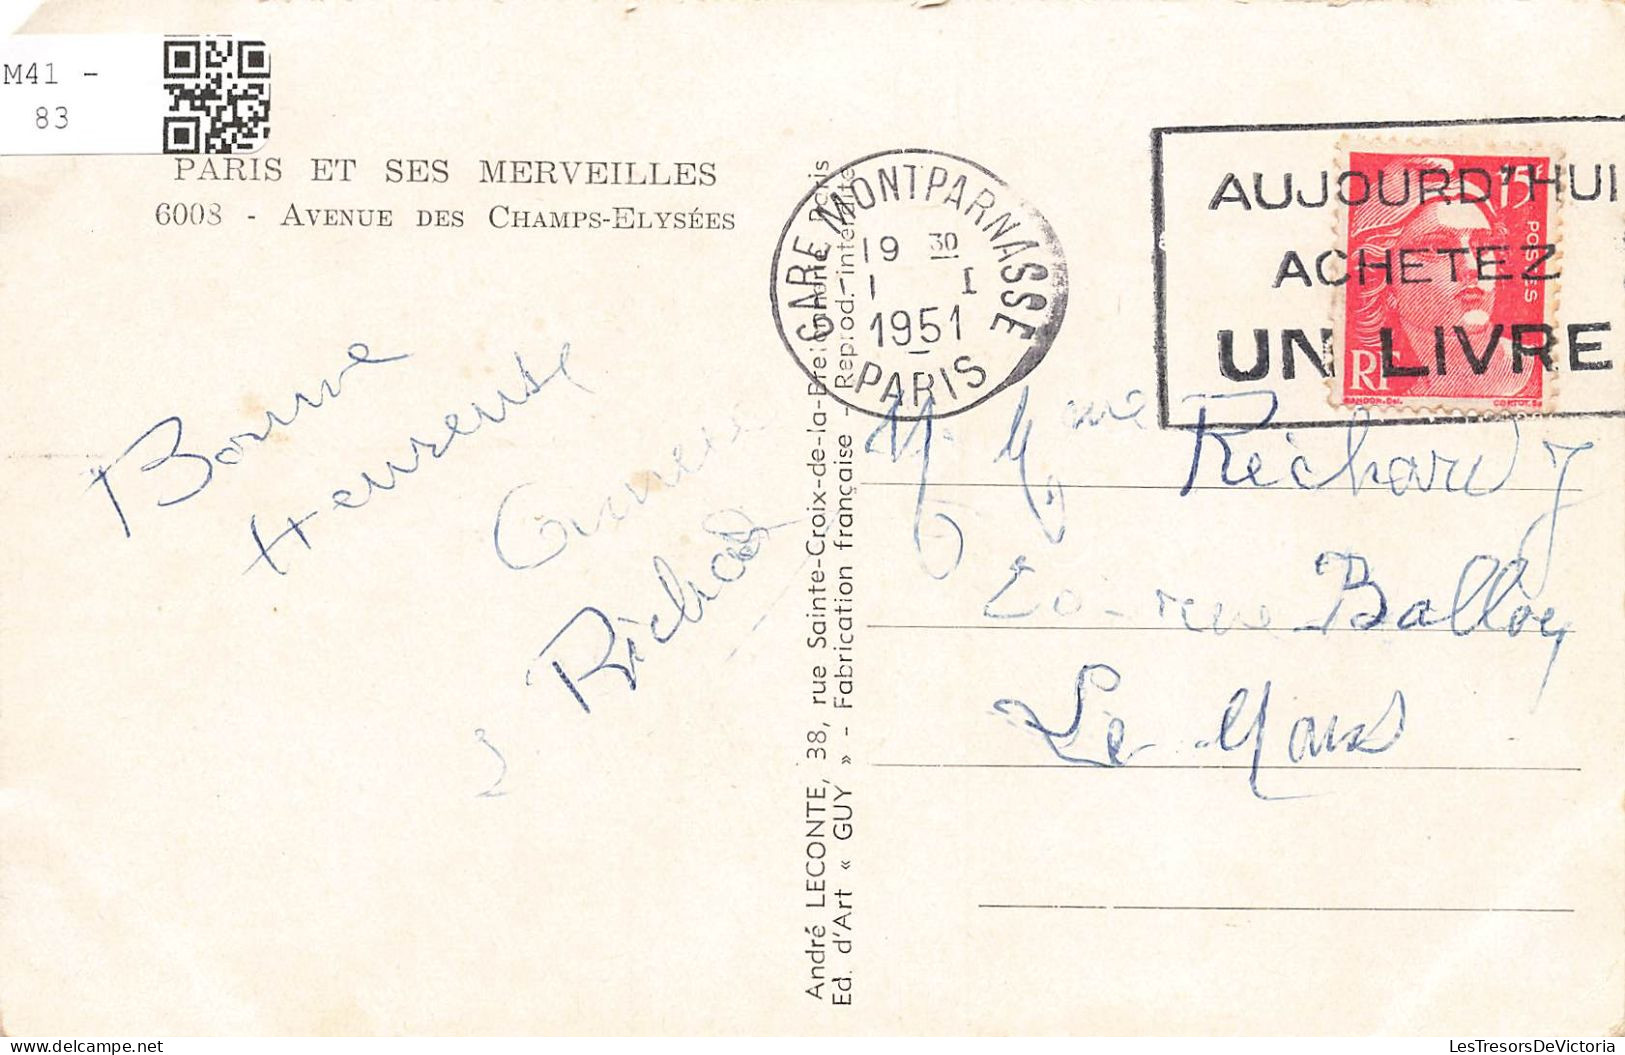 M41 -
83
PARIS ET SES MERVEILLES
6008 - AVENUE DES CHAMPS-ELYSÉES
Bonne
Heureuse
Année
Richard
André LECONTE, 38, rue Sainte-Croix-de-la-Bretonnerie Paris
Ed. d'Art « GUY » - Fabrication française - Reprod. interdite
GARE MONTPARNASSE
19 30
1 - I
1951
PARIS
AUJOURD'HUI
ACHETEZ
UN LIVRE
15F
POSTES
RF
GANDON. Del.
CORTOT. Sc
Mr Mme Richard
rue Balloy
Le Mans
Delcampe.net
LesTresorsDeVictoria